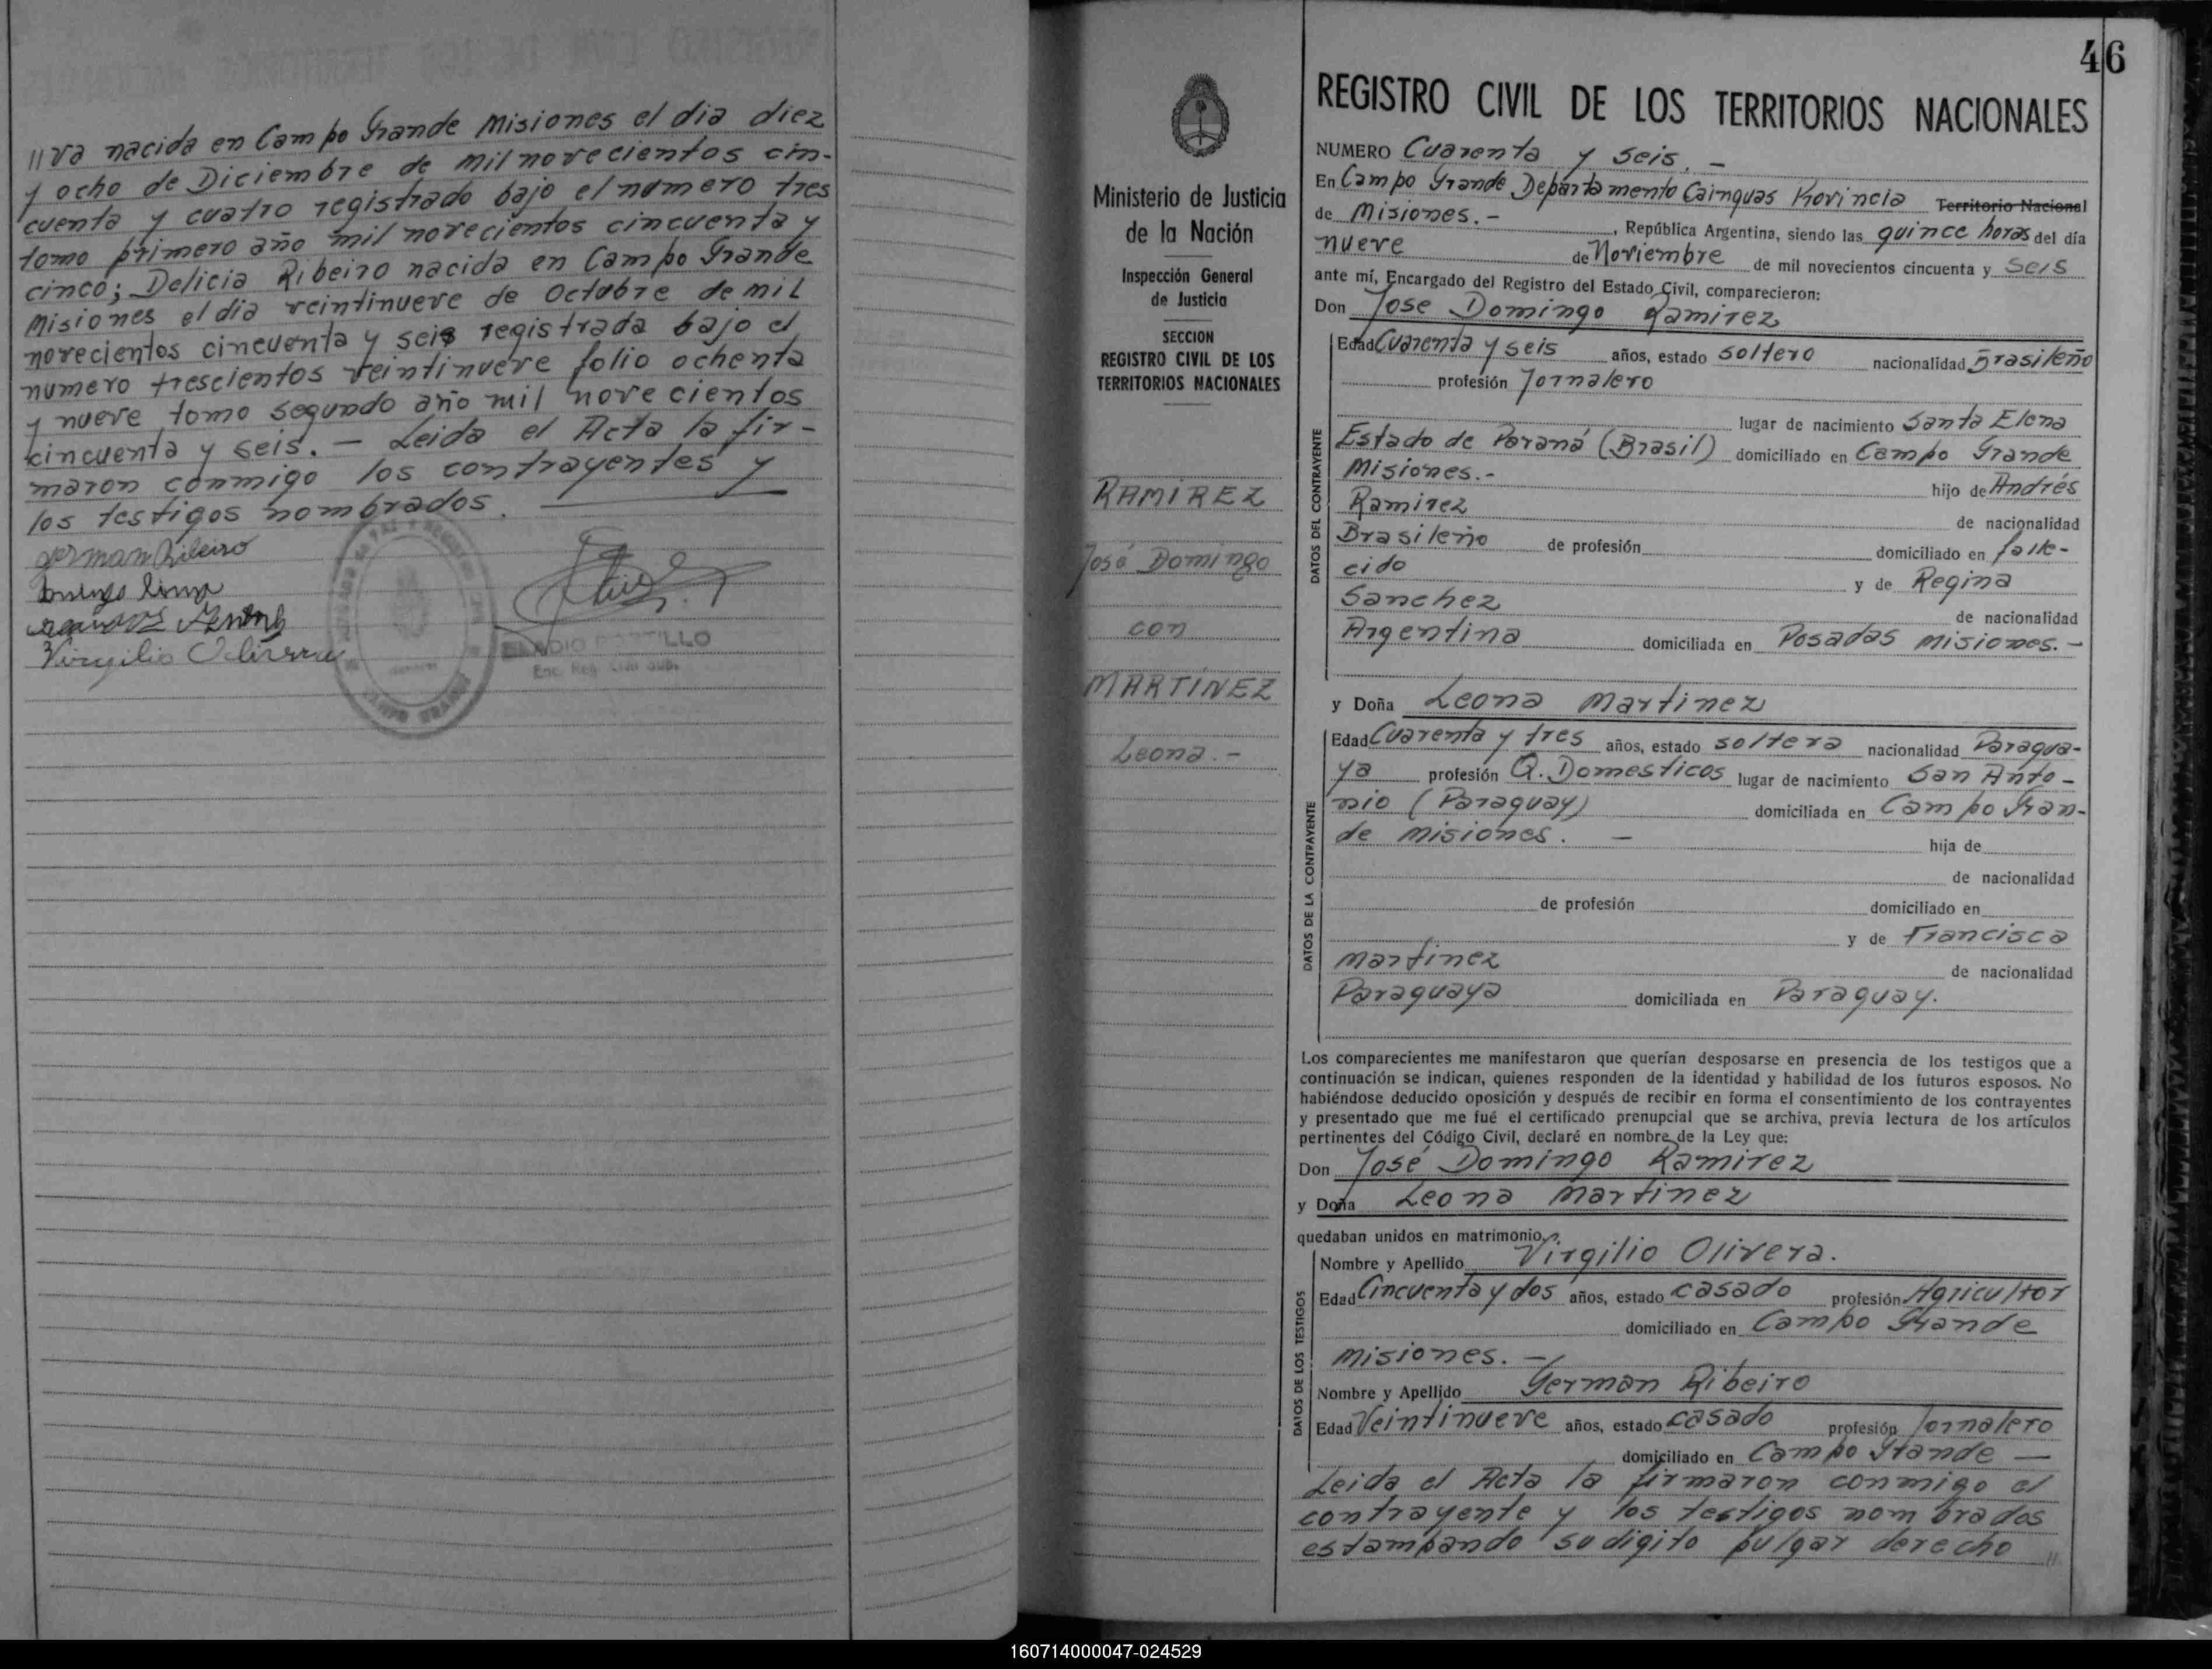 //va nacida en Campo Grande Misiones el dia diez
y ocho de Diciembre de mil novecientos cin-
cuenta y cuatro registrado bajo el numero tres
tomo primero año mil novecientos cincuenta y
cinco; Delicia Ribeiro nacida en Campo Grande
Misiones el dia veintinueve de Octubre de mil
novecientos cincuenta y seis registrada bajo el
numero trescientos veintinueve folio ochenta
y nueve tomo segundo año mil novecientos
cincuenta y seis. — Leida el Acta la fir-
maron conmigo los contrayentes y
los testigos nombrados.
German Ribeiro
Virgilio Olivera
ELADIO PORTILLO
Enc. Reg. Civil Sub.
46
Ministerio de Justicia
de la Nación
Inspección General
de Justicia
SECCION
REGISTRO CIVIL DE LOS
TERRITORIOS NACIONALES
RAMIREZ
José Domingo
con
MARTINEZ
Leona.-
REGISTRO CIVIL DE LOS TERRITORIOS NACIONALES
NUMERO Cuarenta y seis.-
En Campo Grande Departamento Cainguas Provincia Territorio Nacional
de Misiones.- , República Argentina, siendo las quince horas del día
nueve de Noviembre de mil novecientos cincuenta y seis
ante mí, Encargado del Registro del Estado Civil, comparecieron:
Don Jose Domingo Ramirez
DATOS DEL CONTRAYENTE
Edad Cuarenta y seis años, estado soltero nacionalidad Brasileño
profesión Jornalero
lugar de nacimiento Santa Elena
Estado de Paraná (Brasil) domiciliado en Campo Grande
Misiones.- hijo de Andrés
Ramirez de nacionalidad
Brasileño de profesión domiciliado en falle-
cido y de Regina
Sanchez de nacionalidad
Argentina domiciliada en Posadas Misiones.-
y Doña Leona Martinez
DATOS DE LA CONTRAYENTE
Edad Cuarenta y tres años, estado soltera nacionalidad Paragua-
ya profesión Q. Domesticos lugar de nacimiento San Anto-
nio (Paraguay) domiciliada en Campo Gran-
de Misiones. — hija de
de nacionalidad
de profesión domiciliado en
y de Francisca
Martinez de nacionalidad
Paraguaya domiciliada en Paraguay.
Los comparecientes me manifestaron que querían desposarse en presencia de los testigos que a
continuación se indican, quienes responden de la identidad y habilidad de los futuros esposos. No
habiéndose deducido oposición y después de recibir en forma el consentimiento de los contrayentes
y presentado que me fué el certificado prenupcial que se archiva, previa lectura de los artículos
pertinentes del Código Civil, declaré en nombre de la Ley que:
Don José Domingo Ramirez
y Doña Leona Martinez
quedaban unidos en matrimonio.
DATOS DE LOS TESTIGOS
Nombre y Apellido Virgilio Olivera.
Edad Cincuenta y dos años, estado casado profesión Agricultor
domiciliado en Campo Grande
Misiones.-
Nombre y Apellido German Ribeiro
Edad Veintinueve años, estado casado profesión Jornalero
domiciliado en Campo Grande —
Leida el Acta la firmaron conmigo el
contrayente y los testigos nombrados
estampando su digito pulgar derecho //
160714000047-024529